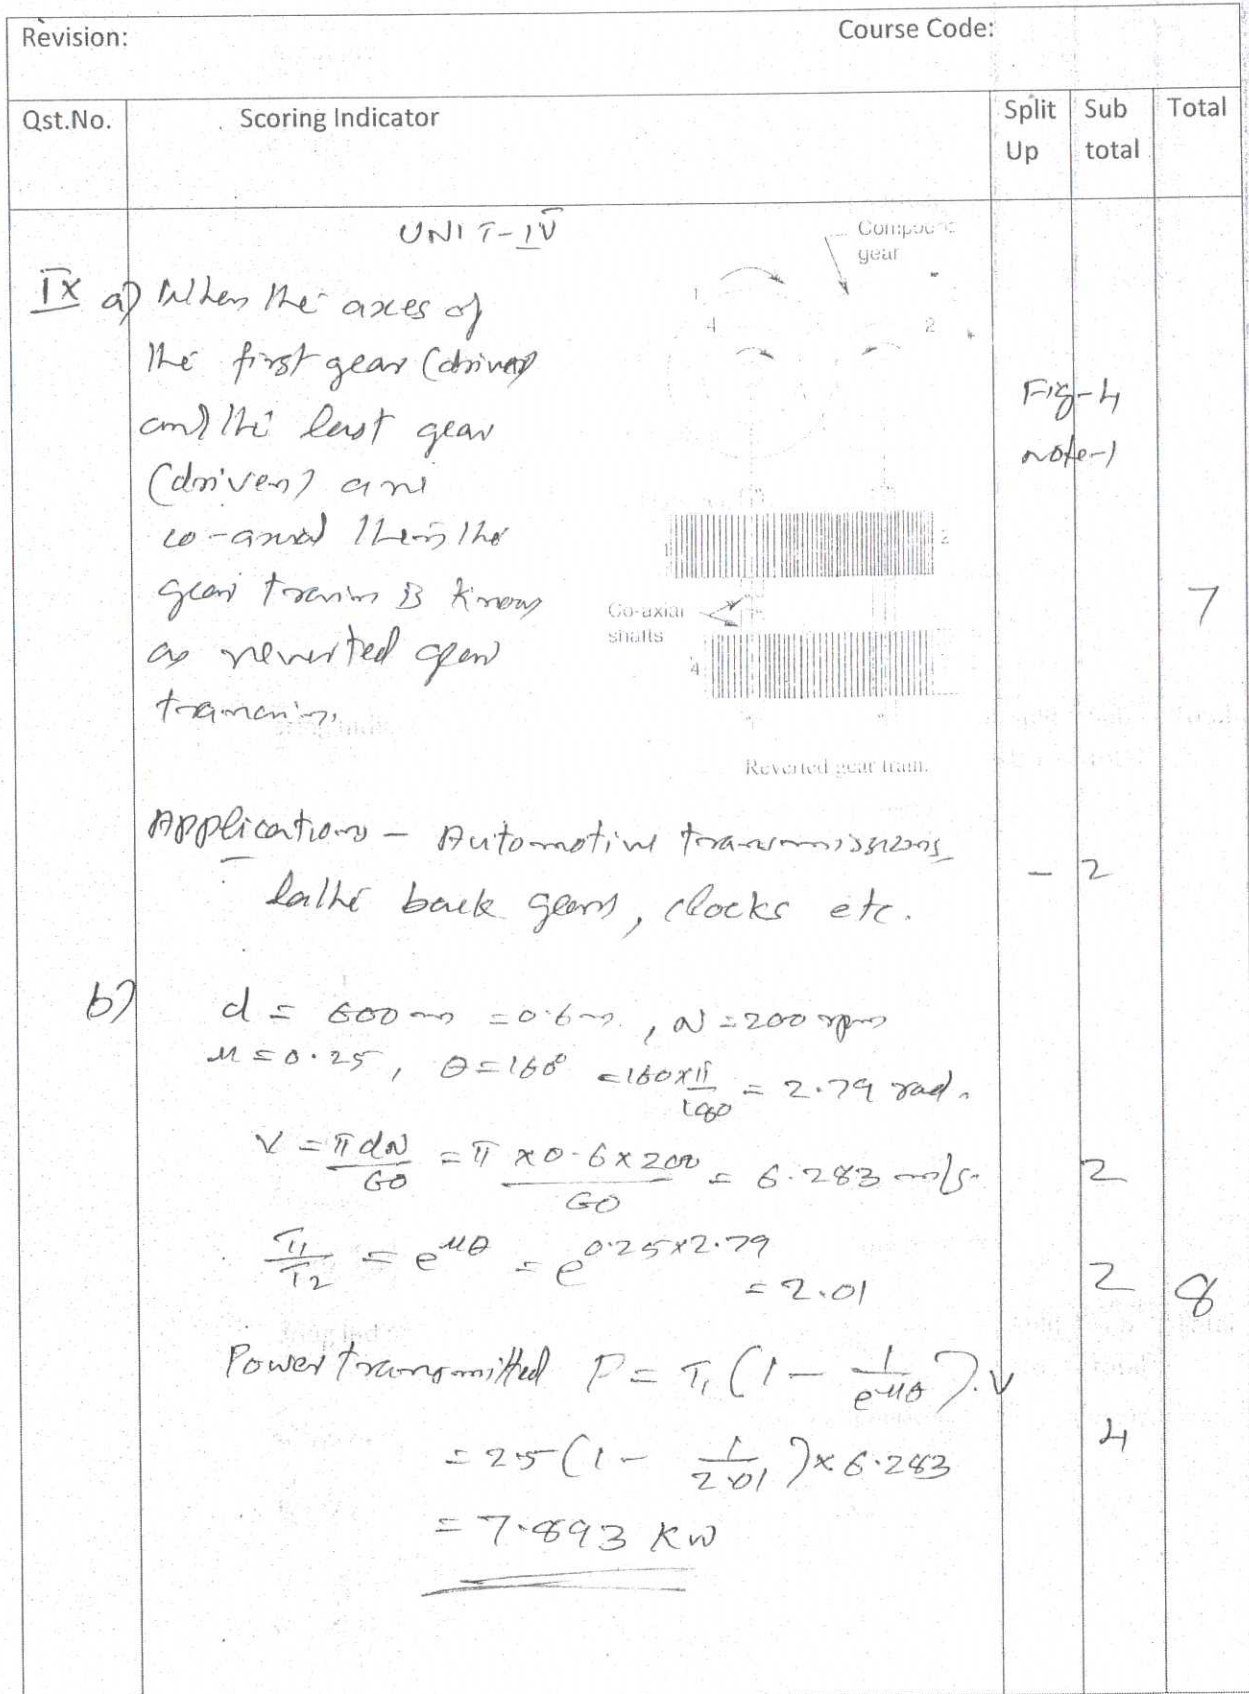 Revision:
Course Code:
Qst.No.
Scoring Indicator
Split Up
Sub total
Total
UNIT-IV
IX a) When the axes of
the first gear (driver)
and the last gear
(driven) are
co-axial then the
gear train is known
as reverted gear
Compound
gear
1
4
2
1
2
Co-axial
shafts
4
Reverted gear train.
Fig-4
note-1
7
Applications - Automotive transmissions,
lathe back gears, clocks etc.
- 2
b) d = 600mm = 0.6m, N = 200 rpm
μ = 0.25, θ = 160° = 160×π/180 = 2.79 rad.
V = πdN/60 = π×0.6×200/60 = 6.283 m/s. 2
T1/T2 = e^μθ = e^0.25×2.79
= 2.01 2
8
Power transmitted P = T1 (1 - 1/e^μθ).V
= 2.5 (1 - 1/2.01) × 6.283 4
= 7.893 KW